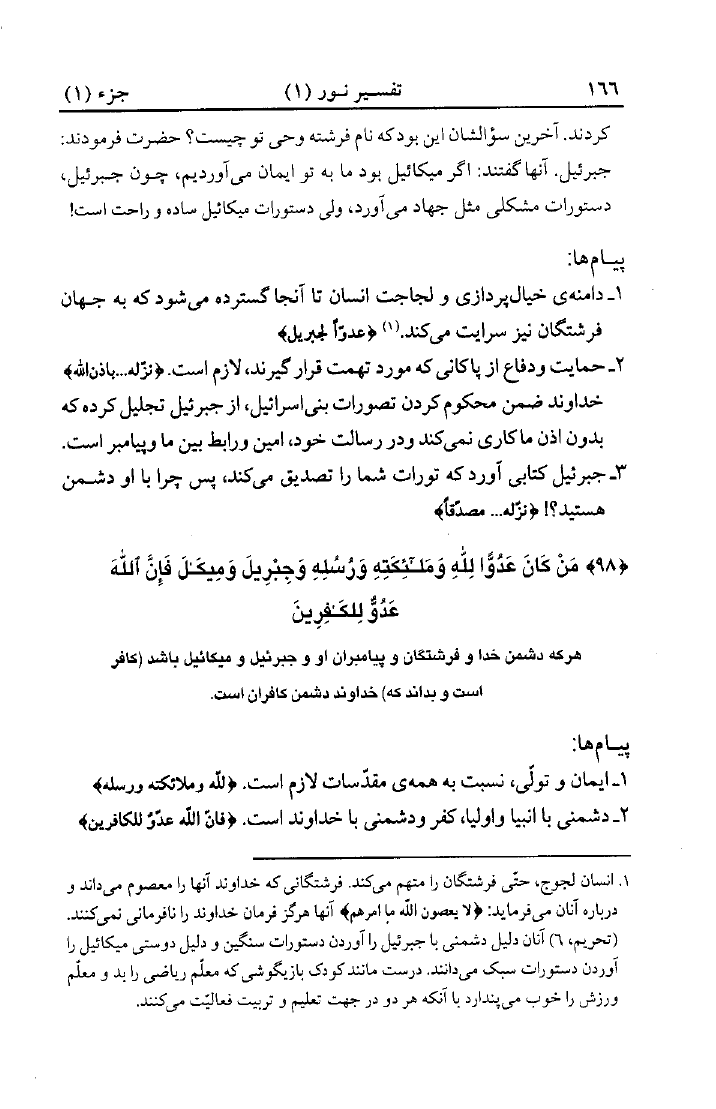 ١٦٦ تفسیر نور (١) جزء (١)
کردند. آخرین سؤالشان این بود که نام فرشته وحی تو چیست؟ حضرت فرمودند:
جبرئیل. آنها گفتند: اگر میکائیل بود ما به تو ایمان می‌آوردیم، چون جبرئیل،
دستورات مشکلی مثل جهاد می‌آورد، ولی دستورات میکائیل ساده و راحت است!
پیام‌ها:
١ـ دامنه‌ی خیال‌پردازی و لجاجت انسان تا آنجا گسترده می‌شود که به جهان
فرشتگان نیز سرایت می‌کند.(١) ﴿عدوّاً لجبریل﴾
٢ـ حمایت ودفاع از پاکانی که مورد تهمت قرار گیرند، لازم است. ﴿نزّله...باذن‌الله﴾
خداوند ضمن محکوم کردن تصورات بنی‌اسرائیل، از جبرئیل تجلیل کرده که
بدون اذن ما کاری نمی‌کند ودر رسالت خود، امین ورابط بین ما وپیامبر است.
٣ـ جبرئیل کتابی آورد که تورات شما را تصدیق می‌کند، پس چرا با او دشمن
هستید؟! ﴿نزّله... مصدّقاً﴾
﴿٩٨﴾ مَنْ كَانَ عَدُوًّا لِلّٰهِ وَمَلَـٰٓئِكَتِهِ وَرُسُلِهِ وَجِبْرِيلَ وَمِيكَـٰلَ فَإِنَّ ٱللّٰهَ
عَدُوٌّ لِلْكَـٰفِرِينَ
هرکه دشمن خدا و فرشتگان و پیامبران او و جبرئیل و میکائیل باشد (کافر
است و بداند که) خداوند دشمن کافران است.
پیام‌ها:
١ـ ایمان و تولّی، نسبت به همه‌ی مقدّسات لازم است. ﴿للّه وملائکته ورسله﴾
٢ـ دشمنی با انبیا واولیا، کفر ودشمنی با خداوند است. ﴿فانّ اللّه عدوّ للکافرین﴾
١. انسان لجوج، حتّی فرشتگان را متهم می‌کند. فرشتگانی که خداوند آنها را معصوم می‌داند و
درباره آنان می‌فرماید: ﴿لا یعصون اللّه ما امرهم﴾ آنها هرگز فرمان خداوند را نافرمانی نمی‌کنند.
(تحریم، ٦) آنان دلیل دشمنی با جبرئیل را آوردن دستورات سنگین و دلیل دوستی میکائیل را
آوردن دستورات سبک می‌دانند. درست مانند کودک بازیگوشی که معلّم ریاضی را بد و معلّم
ورزش را خوب می‌پندارد با آنکه هر دو در جهت تعلیم و تربیت فعالیّت می‌کنند.